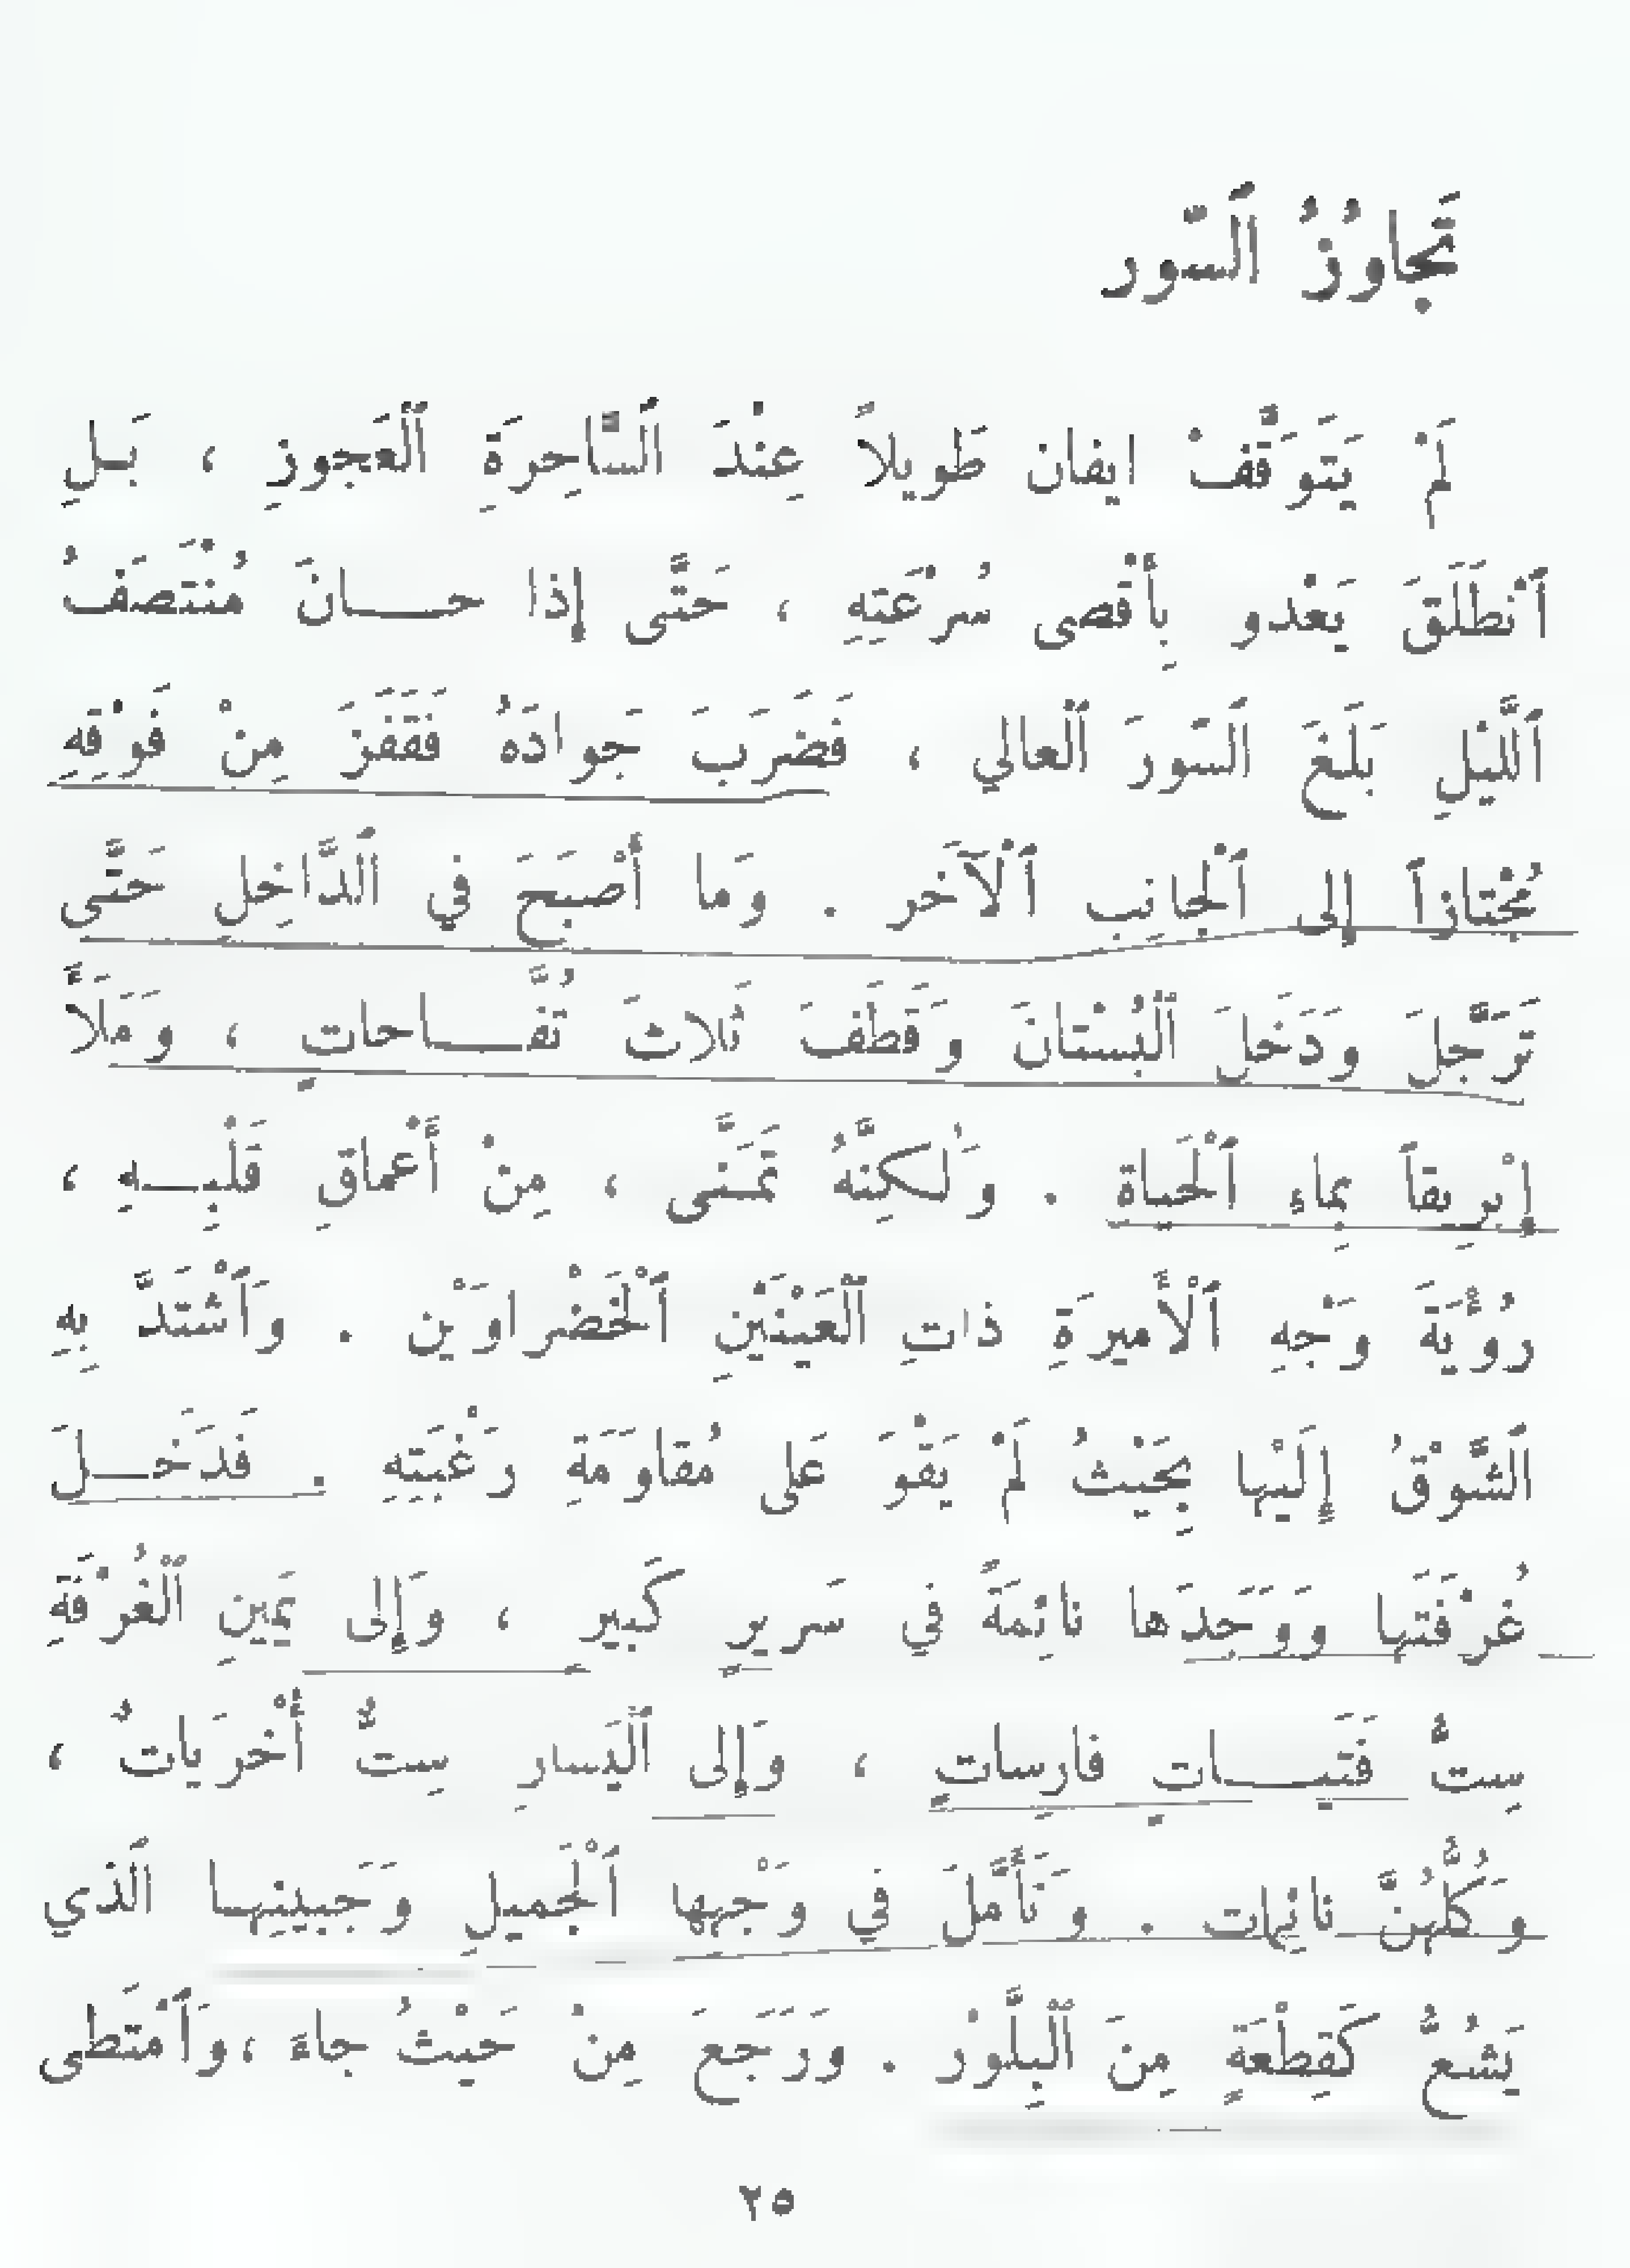 تَجاوُزُ ٱلسّور
لَمْ يَتَوَقَّفْ ايفان طَويلاً عِنْدَ ٱلسَّاحِرَةِ ٱلْعَجوزِ ، بَـلِ
ٱنْطَلَقَ يَعْدو بِأَقْصى سُرْعَتِهِ ، حَتَّى إِذا حـــانَ مُنْتَصَفُ
ٱللَّيْلِ بَلَغَ ٱلسّورَ ٱلْعالي ، فَضَرَبَ جَوادَهُ فَقَفَزَ مِنْ فَوْقِهِ
مُجْتازاً إِلى ٱلْجانِبِ ٱلْآخَر . وَما أَصْبَحَ في ٱلدَّاخِلِ حَتَّى
تَرَجَّلَ وَدَخَلَ ٱلْبُسْتانَ وَقَطَفَ ثَلاثَ تُفَّـــاحاتٍ ، وَمَلَأَ
إِبْريقاً بِماءِ ٱلْحَياة . وَلٰكِنَّهُ تَمَنَّى ، مِنْ أَعْماقِ قَلْبِـــهِ ،
رُؤْيَةَ وَجْهِ ٱلْأَميرَةِ ذاتِ ٱلْعَيْنَيْنِ ٱلْخَضْراوَيْن . وَٱشْتَدَّ بِهِ
ٱلشَّوْقُ إِلَيْها بِحَيْثُ لَمْ يَقْوَ عَلى مُقاوَمَةِ رَغْبَتِهِ . فَدَخَـــلَ
غُرْفَتَها وَوَجَدَها نائِمَةً في سَريرٍ كَبيرٍ ، وَإِلى يَمينِ ٱلْغُرْفَةِ
سِتُّ فَتَيـــاتٍ فارِساتٍ ، وَإِلى ٱلْيَسارِ سِتٌّ أُخْرَياتٌ ،
وَكُلُّهُنَّ نائِمات . وَتَأَمَّلَ في وَجْهِها ٱلْجَميلِ وَجَبينِهـا ٱلَّذي
يَشُعُّ كَقِطْعَةٍ مِنَ ٱلْبِلَّوْر . وَرَجَعَ مِنْ حَيْثُ جاءَ ، وَٱمْتَطى
٢٥